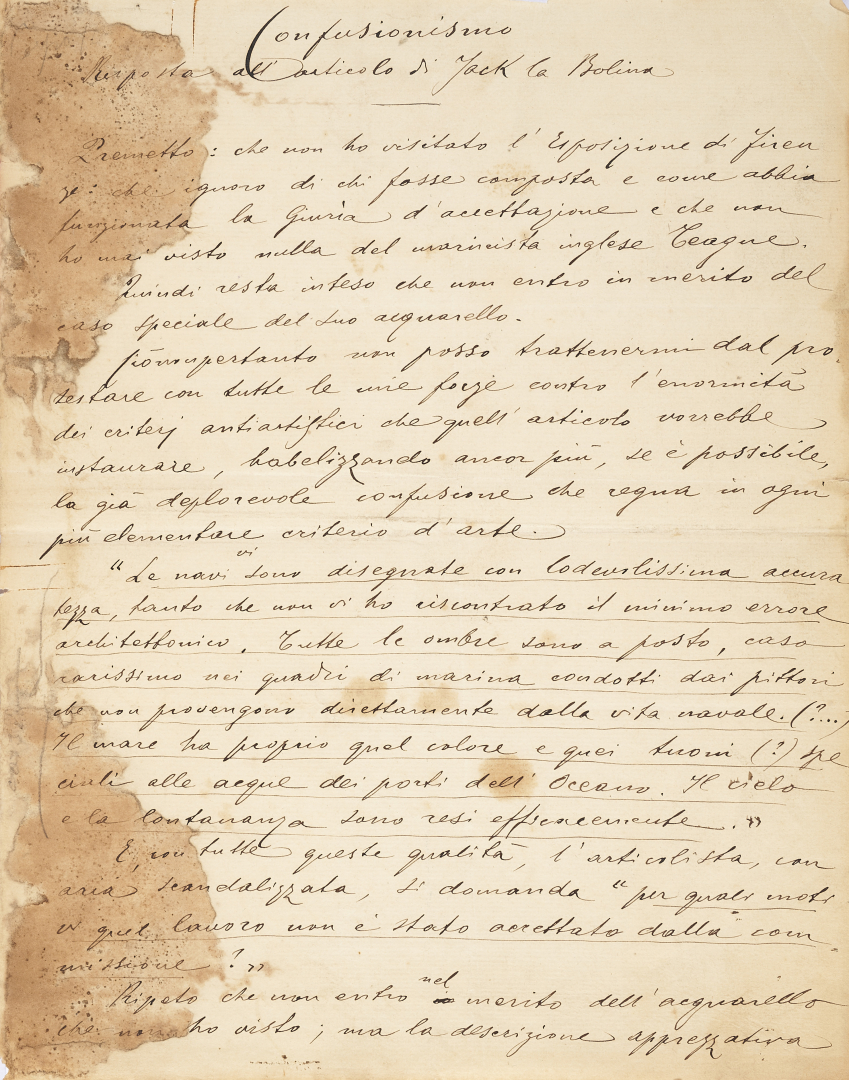 Confusionismo
Risposta all'articolo di Jack la Bolina
Premetto: che non ho visitato l'Esposizione di Firen
ze: che ignoro di chi fosse composta e come abbia
funzionata la Giuria d'accettazione e che non
ho mai visto nulla del marinista inglese Teague.
Quindi resta inteso che non entro in merito del
caso speciale del suo acquarello.
Ciònonpertanto non posso trattenermi dal pro-
testare con tutte le mie forze contro l'enormità
dei criterj antiartistici che quell'articolo vorrebbe
instaurare, babelizzando ancor più, se è possibile,
la già deplorevole confusione che regna in ogni
più elementare criterio d'arte.
"Le navi vi sono disegnate con lodevolissima accura
tezza, tanto che non vi ho riscontrato il minimo errore
architettonico. Tutte le ombre sono a posto, caso
rarissimo nei quadri di marina condotti dai pittori
che non provengono direttamente dalla vita navale. (?...)
Il mare ha proprio quel colore e quei tuoni (?) spe
ciali alle acque dei porti dell'Oceano. Il cielo
e la lontananza sono resi efficacemente."
E, con tutte queste qualità, l'articolista, con
aria scandalizzata, si domanda "per quali moti
vi quel lavoro non è stato accettato dalla com-
missione?"
Ripeto che non entro nel merito dell'acquarello
che non ho visto; ma la descrizione apprezzativa